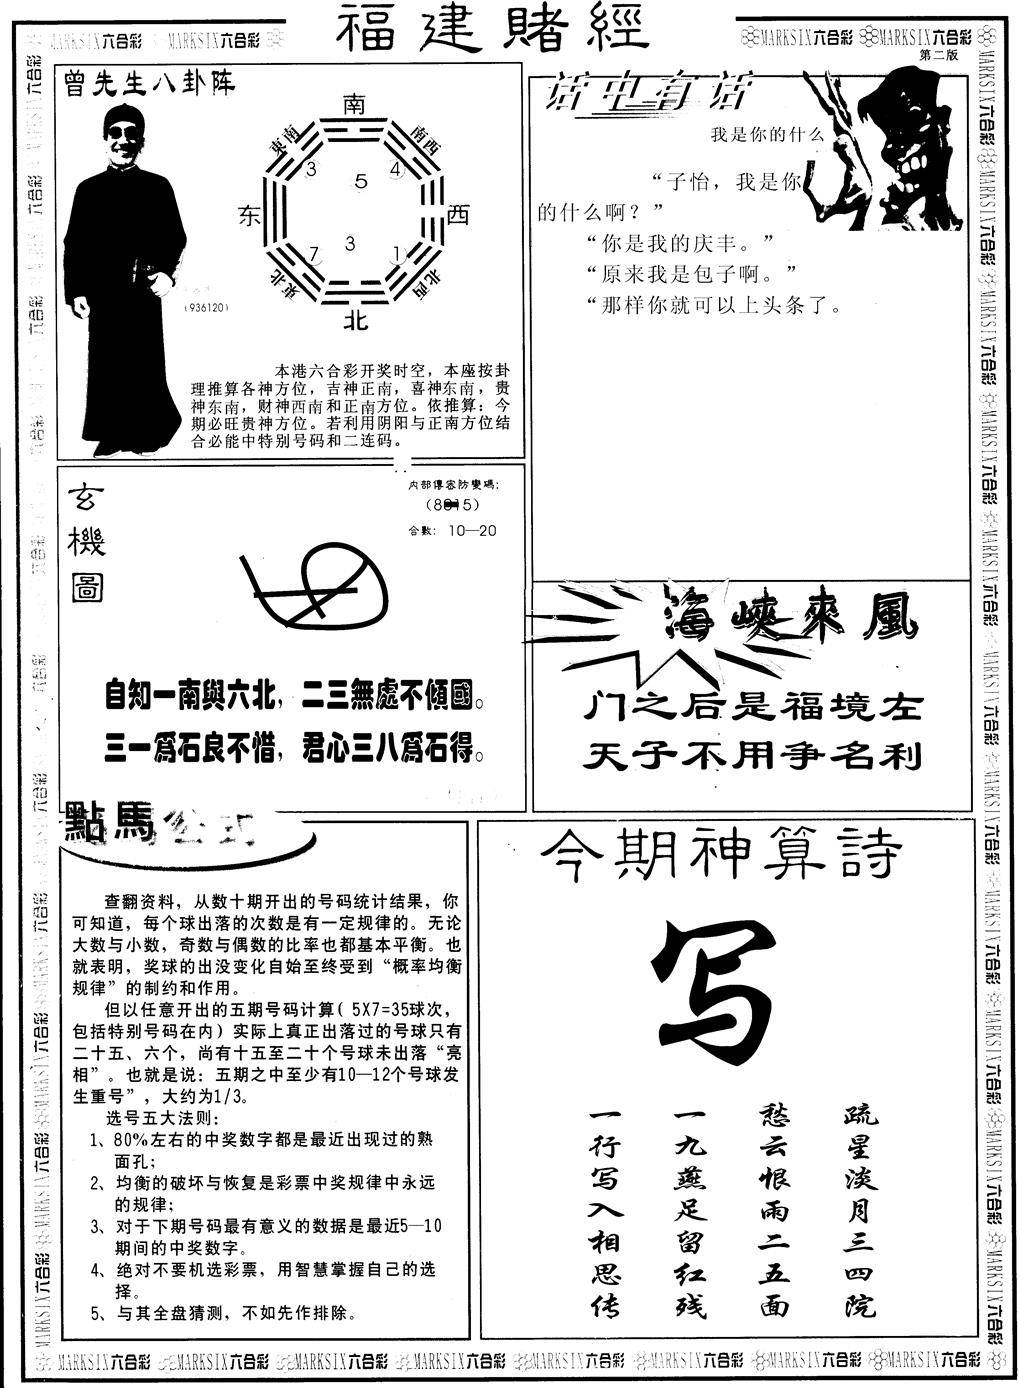 福建賭經
MARKSIX六合彩 MARKSIX六合彩
MARKSIX六合彩 MARKSIX六合彩
第二版
曾先生八卦阵
南
東南
南西
3
4
5
东
西
3
7
1
東北
北西
北
(936120)
本港六合彩开奖时空，本座按卦
理推算各神方位，吉神正南，喜神东南，贵
神东南，财神西南和正南方位。依推算：今
期必旺贵神方位。若利用阴阳与正南方位结
合必能中特别号码和二连码。
话中有话
我是你的什么
“子怡，我是你
的什么啊？”
“你是我的庆丰。”
“原来我是包子啊。”
“那样你就可以上头条了。
玄機圖
内部傳密防變碼：
合數： 10—20
自知一南與六北，二三無處不傾國。
三一為石良不惜，君心三八為石得。
海峽來風
门之后是福境左
天子不用争名利
點馬公式
查翻资料，从数十期开出的号码统计结果，你
可知道，每个球出落的次数是有一定规律的。无论
大数与小数，奇数与偶数的比率也都基本平衡。也
就表明，奖球的出没变化自始至终受到“概率均衡
规律”的制约和作用。
但以任意开出的五期号码计算( 5X7=35球次，
包括特别号码在内) 实际上真正出落过的号球只有
二十五、六个，尚有十五至二十个号球未出落“亮
相”。也就是说：五期之中至少有10—12个号球发
生重号”，大约为1/3。
选号五大法则：
1、80%左右的中奖数字都是最近出现过的熟
面孔；
2、均衡的破坏与恢复是彩票中奖规律中永远
的规律；
3、对于下期号码最有意义的数据是最近5—10
期间的中奖数字。
4、绝对不要机选彩票，用智慧掌握自己的选
择。
5、与其全盘猜测，不如先作排除。
今期神算詩
写
疏星淡月三四院
愁云恨雨二五面
一九燕足留红残
一行写入相思传
MARKSIX六合彩 MARKSIX六合彩 MARKSIX六合彩 MARKSIX六合彩 MARKSIX六合彩 MARKSIX六合彩 MARKSIX六合彩 MARKSIX六合彩